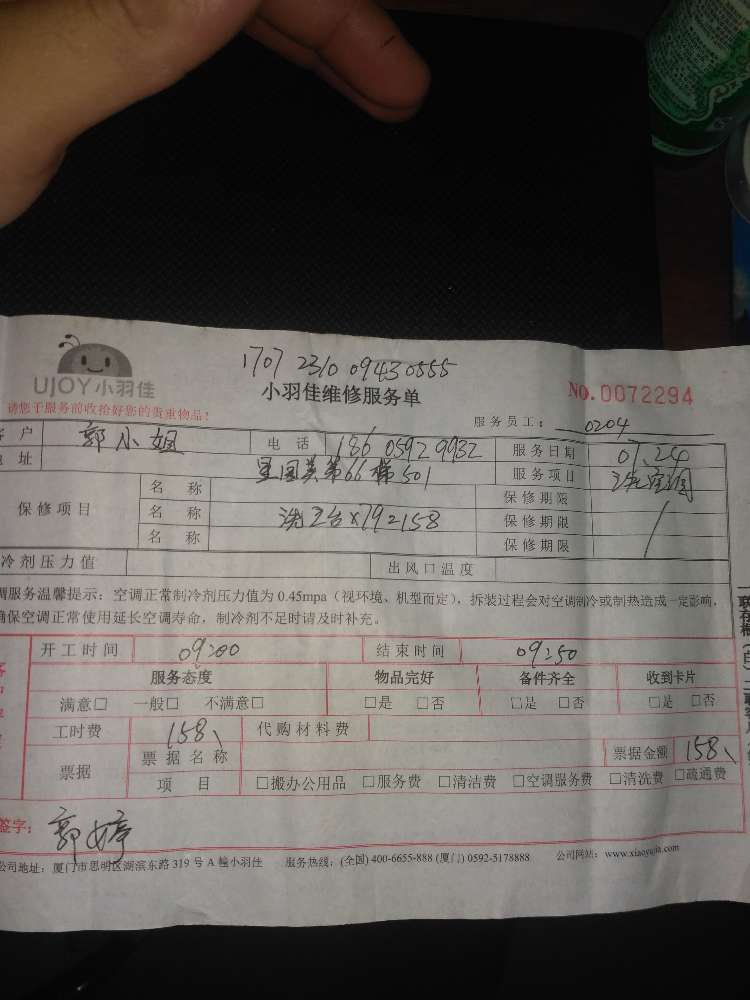 1707 2310 09430555
UJOY小羽佳
小羽佳维修服务单
NO.0072294
请您于服务前收拾好您的贵重物品！
服务员工： 0204
客户 郭小姐 电话 186 0592 9932 服务日期 07.24
地址 第66梯501 服务项目 洗空调
保修项目 名称 保修期限
名称 洗 保修期限
名称 保修期限
冷剂压力值 出风口温度
调服务温馨提示：空调正常制冷剂压力值为 0.45mpa（视环境、机型而定），拆装过程会对空调制冷或制热造成一定影响，
确保空调正常使用延长空调寿命，制冷剂不足时请及时补充。
开工时间 09:00 结束时间 09:50
服务态度 物品完好 备件齐全 收到卡片
满意□ 一般□ 不满意□ □是 □否 □是 □否 □是 □否
工时费 158、 代购材料费
票据 票据名称 票据金额 158、
项目 □搬办公用品 □服务费 □清洁费 □空调服务费 □清洗费 □疏通费
签字： 郭婷
公司地址：厦门市思明区湖滨东路 319 号 A 幢小羽佳 服务热线：(全国) 400-6655-888 (厦门) 0592-5178888 公司网站：www.xiaoyujia.com